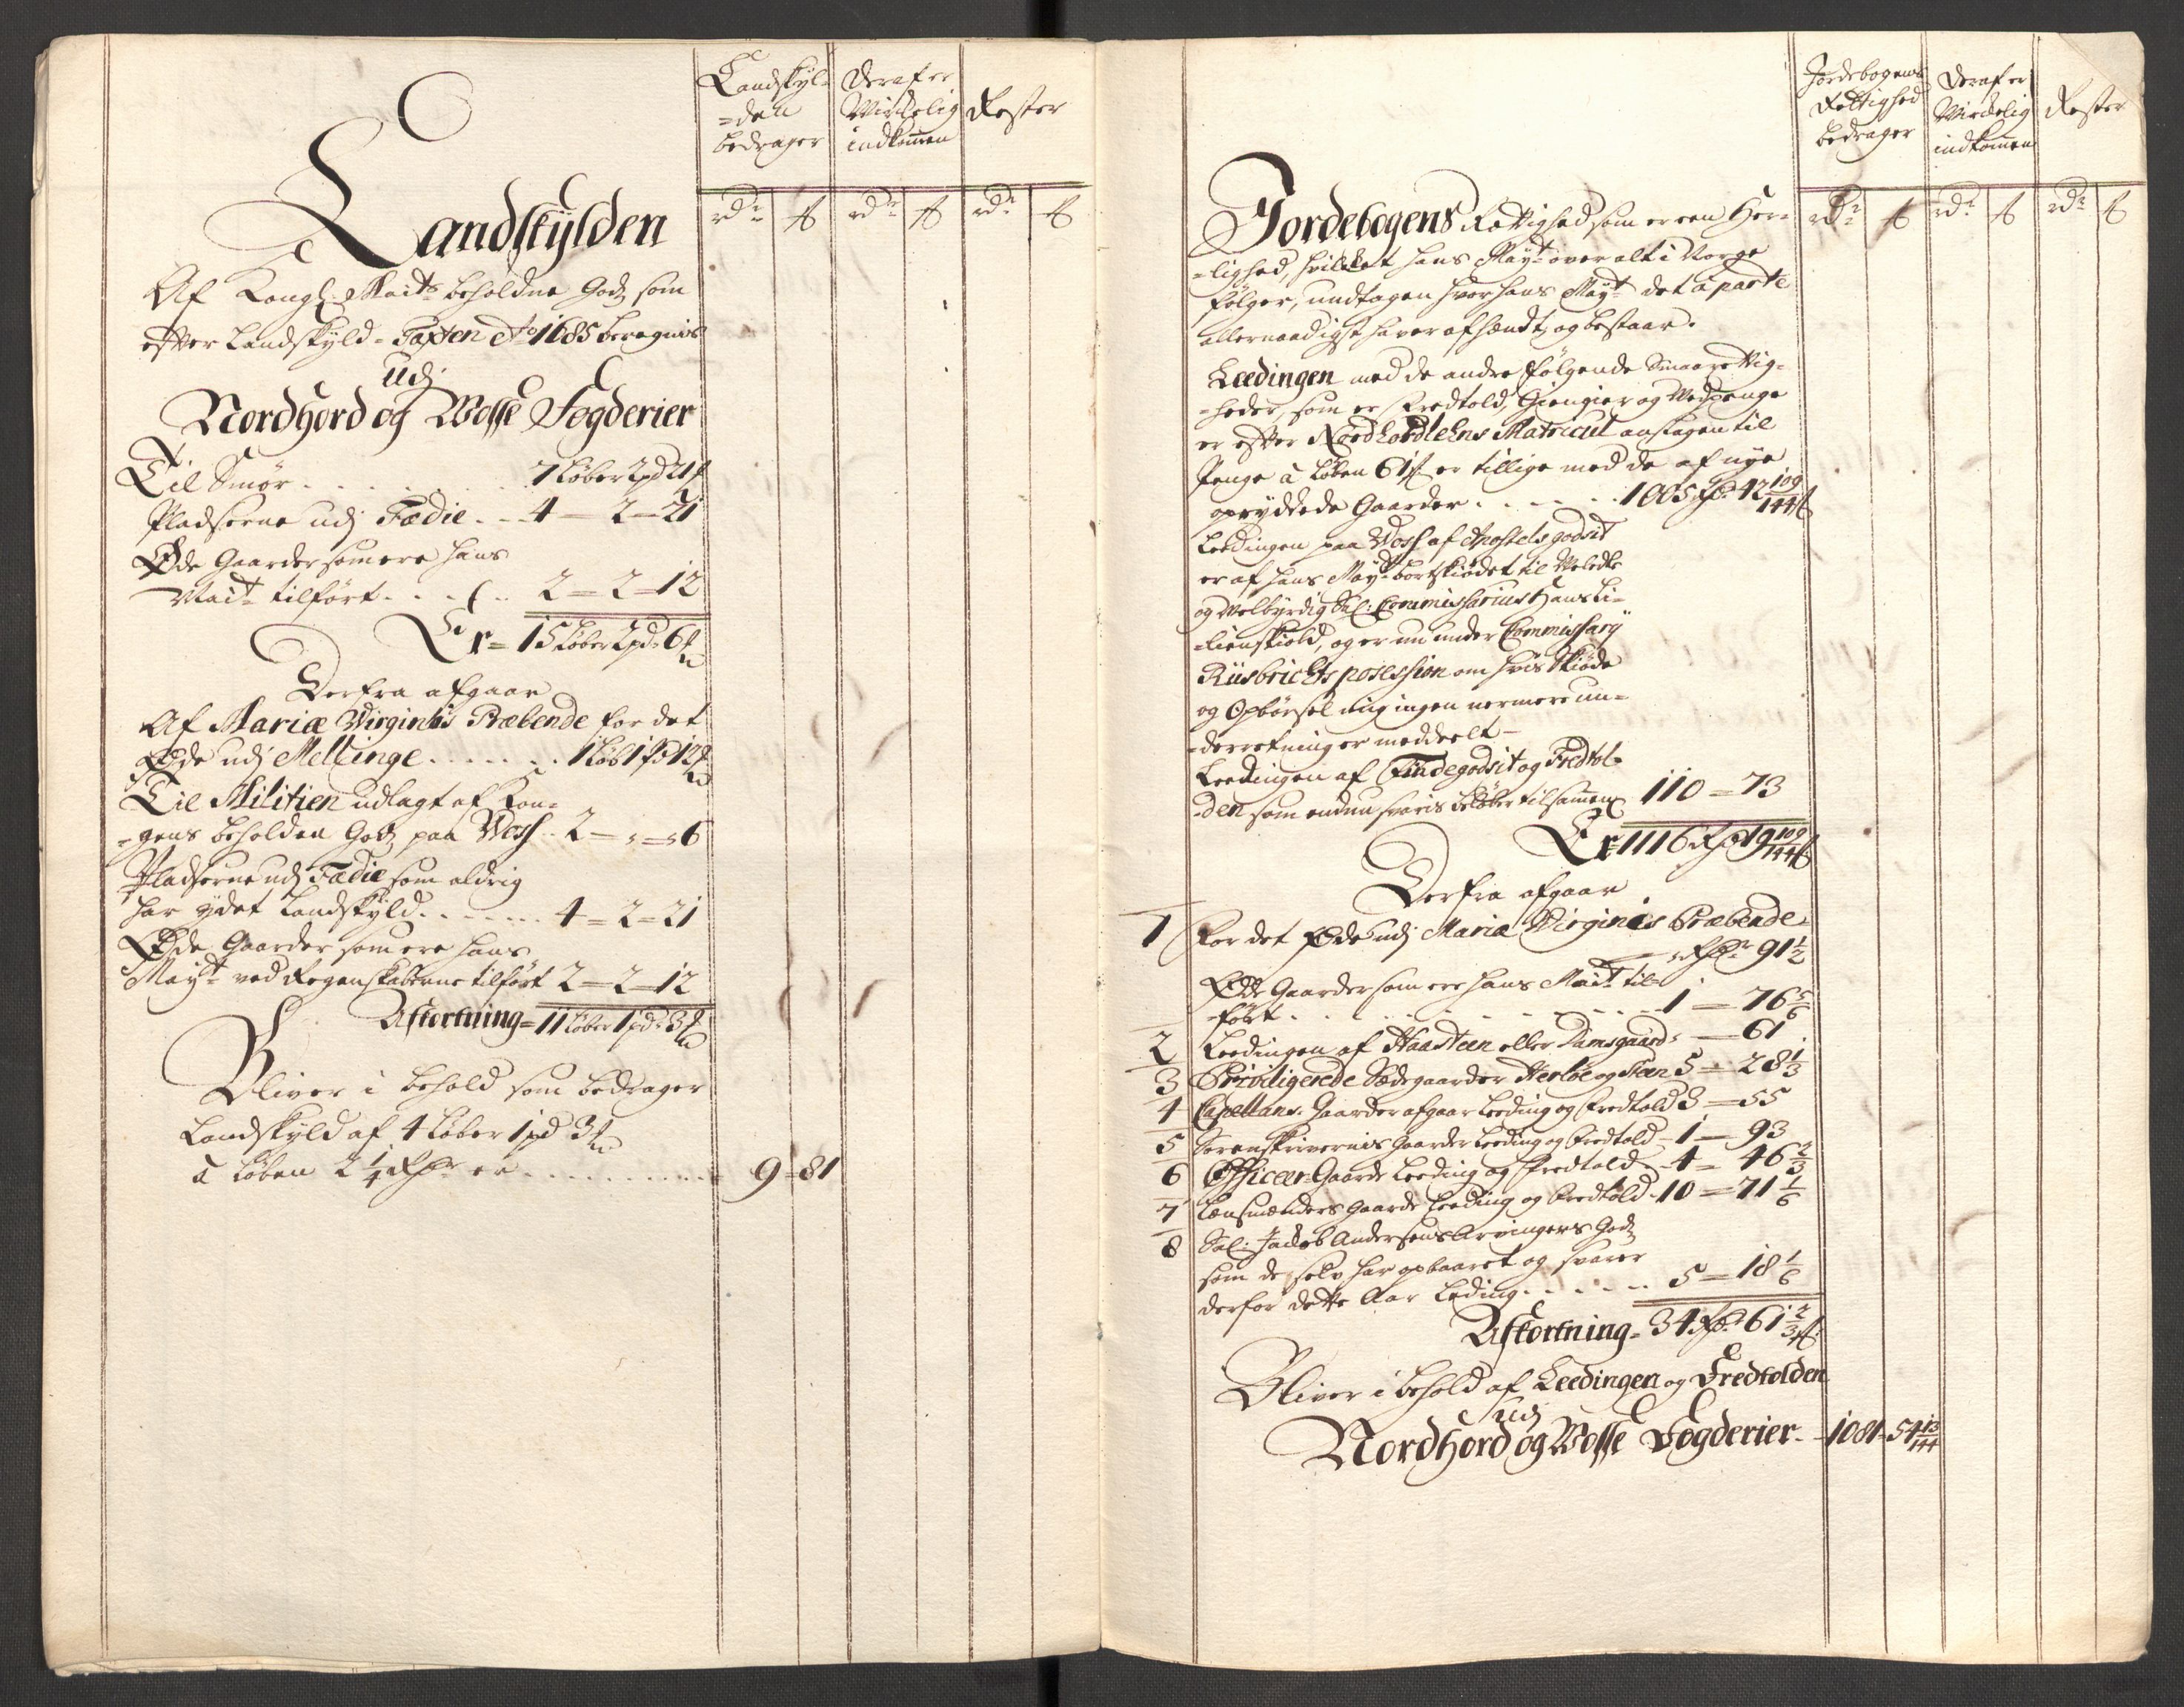 Landskyl-
=den
bedrager
Deraf er
Wirckelig
indkommen
Rester
rdr ß rdr ß rdr ß
Landskylden
Af Kongl: Maits beholdne Godz som
efter Landskyld-Taxten Ao 1685 beregnis
udj
Nordhord og Wosse Fogderier
Til Smør . . . . . . 7 Løber 2 pd 21 ℔
Pladserne udj Fædie . . 4 — 2 — 21
Øde Gaarder som ere hans
Mait tilført . . . . 2 — 2 — 12
Er = 15 Løber 2 pd 6 ℔
Derfra afgaar
Af Mariæ Virginis Præbende for det
Øde udj Mellinge . . . . . . 1 Løb 1 pd 12 ℔
Til Militien udlagt af Kon-
=gens beholden Godz paa Woss . . 2 — „ — 6
Pladserne udj Fædie som aldrig
har ydet Landskyld . . . . . . 4 — 2 — 21
Øde Gaarder som ere hans
Mayt ved Regenskaberne tilført 2 — 2 — 12
Afkortning = 11 Løber 1 pd 3 ℔
Bliver i behold som bedrager
Landskyld af 4 Løber 1 pd 3 ℔
à Løben 2 1/4 Rdr er . . . . . . . . . 9 = 81
Jordebogens
Rettighed
bedrager
Deraf er
Wirckelig
indkommen
Rester
rdr ß rdr ß rdr ß
Jordebogens Rettighed som er een Her-
=lighed, hvilcket hans Mayt over alt i Norge
følger, undtagen hvor hans Mayt det à parte
allernaadigst haver afhændt, og bestaar.
Leedingen med de andre følgende Smaa rettig-
=heder, som er Fredtold, Giengier og Vedpenge
er efter Nordhordlehns Matricul anslagen til
Penge à Løben 61 ß er tillige med de af nye
opryddede Gaarder . . . . . 1005 Rdr 42 109/144 ß
Leedingen paa Woss af Apostels godsit
er af hans Mayt bortskiødet til Velædle
og Velbyrdig Sal: Commissarius Hans Li-
-lienskiold, og er nu under Commissarij
Riisbrichts posession om hvis Skiøde
og Opbørsel mig ingen nermere un-
-derretning er meddeelt —
Leedingen af Findegodsit og Fredtol-
-den som endnu svaris beløber tilsammen 110 = 73
Er 1116 Rdr 19 109/144 ß
Derfra afgaar
1 For det Øde udj Maria Virginis Præbende
„ Rdr 91 1/2
Øde Gaarder som ere hans Mait til-
-ført . . . . . . . . . . 1 — 76 5/6
2 Leedingen af Haasteen eller Damsgaard „ — 61
3 Priviligerede Sædegaarder Herløe og Steen 5 — 28 1/3
4 Capellans Gaarder afgaar Leeding og Fredtold 3 — 55
5 Sorenskrivernis Gaarder Leeding og Fredtold — 1 — 93
6 Officer-Gaarde Leeding og Fredtold — 4 — 46 2/3
7 Lensmænders Gaarde Leeding og Fredtold — 10 — 71 1/6
8 Sal: Jacob Andersens Arvingers Godz
som de selv har opbaaret og svarer
derfor dette Aar Leding . . . . . 5 — 18 1/6
Afkortning = 34 Rdr 61 2/3 ß
Bliver i behold af Leedingen og Fredtolden
udj
Nordhord og Wosse Fogderier — 1081 = 54 13/144